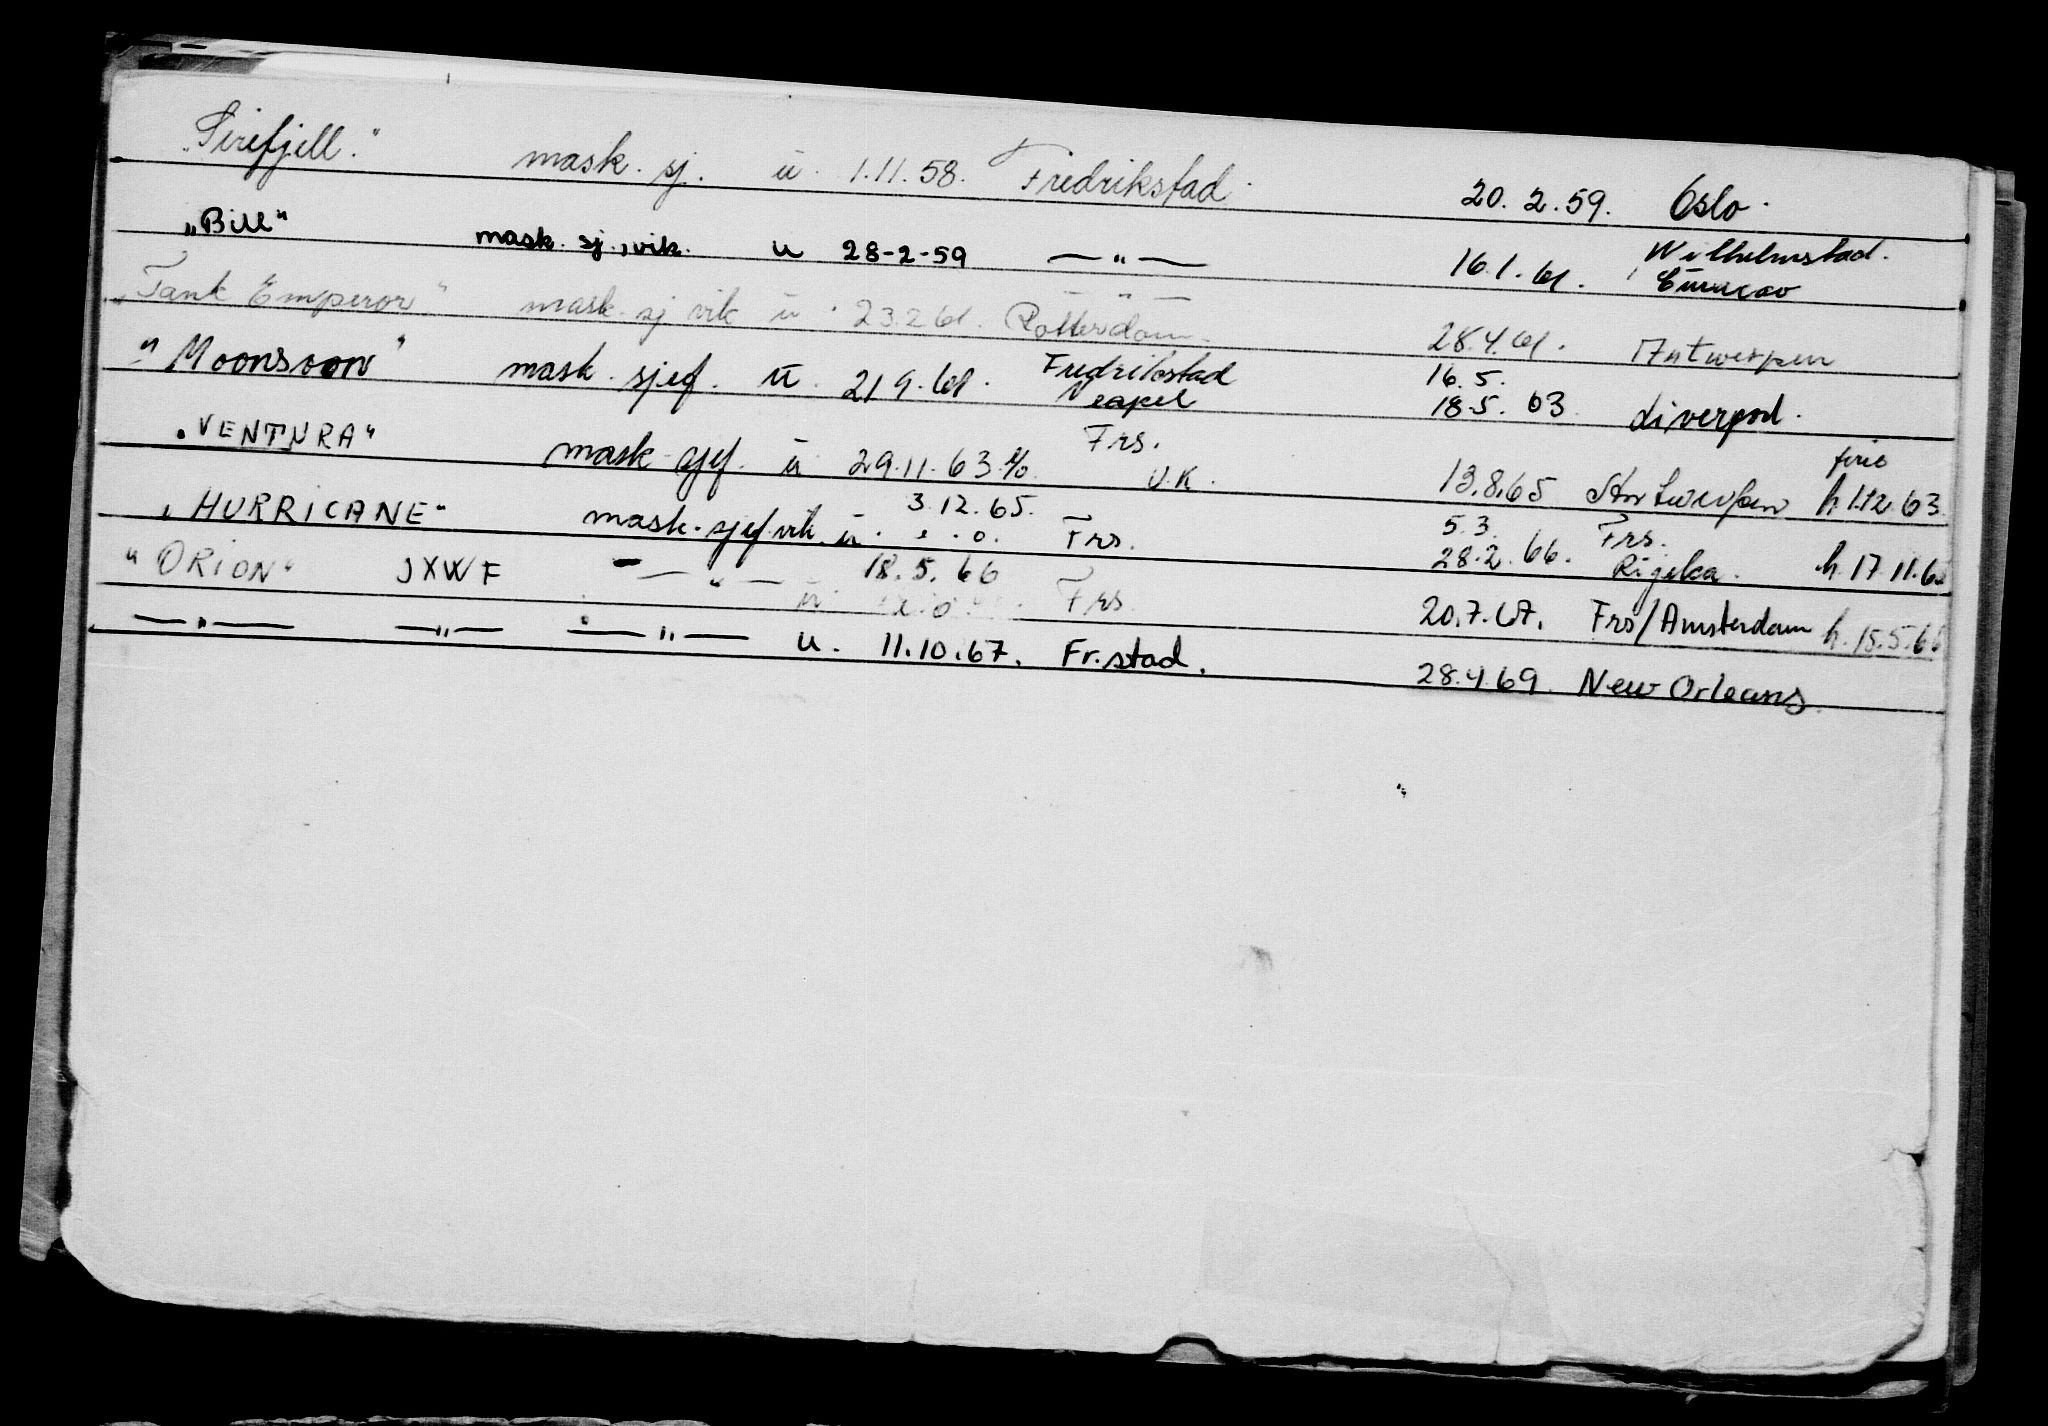 "Sirefjell." mask. sj. u. 1.11.58. Fredrikstad. 20.2.59. Oslo.
"Bill" mask. sj., vik. u 28-2-59 —"— 16.1.61. Wilhelmstad. Curacao
"Tank Emperor" mask. sj vik u. 23.2.61. Rotterdam. 28.4.61. Antwerpen
"Moonsoon" mask. sjef. u. 21 9. 61. Fredrikstad Neapel 16.5. 18.5.63 Liverpool.
"VENTURA" mask sjef. u 29.11.63 Frs. U.K. 13.8.65 Antwerpen h 1.12.63.
"HURRICANE" mask. sjef vik. u. 3.12.65. Frs. 5.3. Frs. 28.2.66. Rijeka. h. 17.11.65
"ORION" JXWF —"— u. 18.5.66 Frs. 20.7.67. Frs/Amsterdam h. 15.5.66
—"— —"— —"— u. 11.10.67. Fr.stad. 28.4.69. New Orleans.